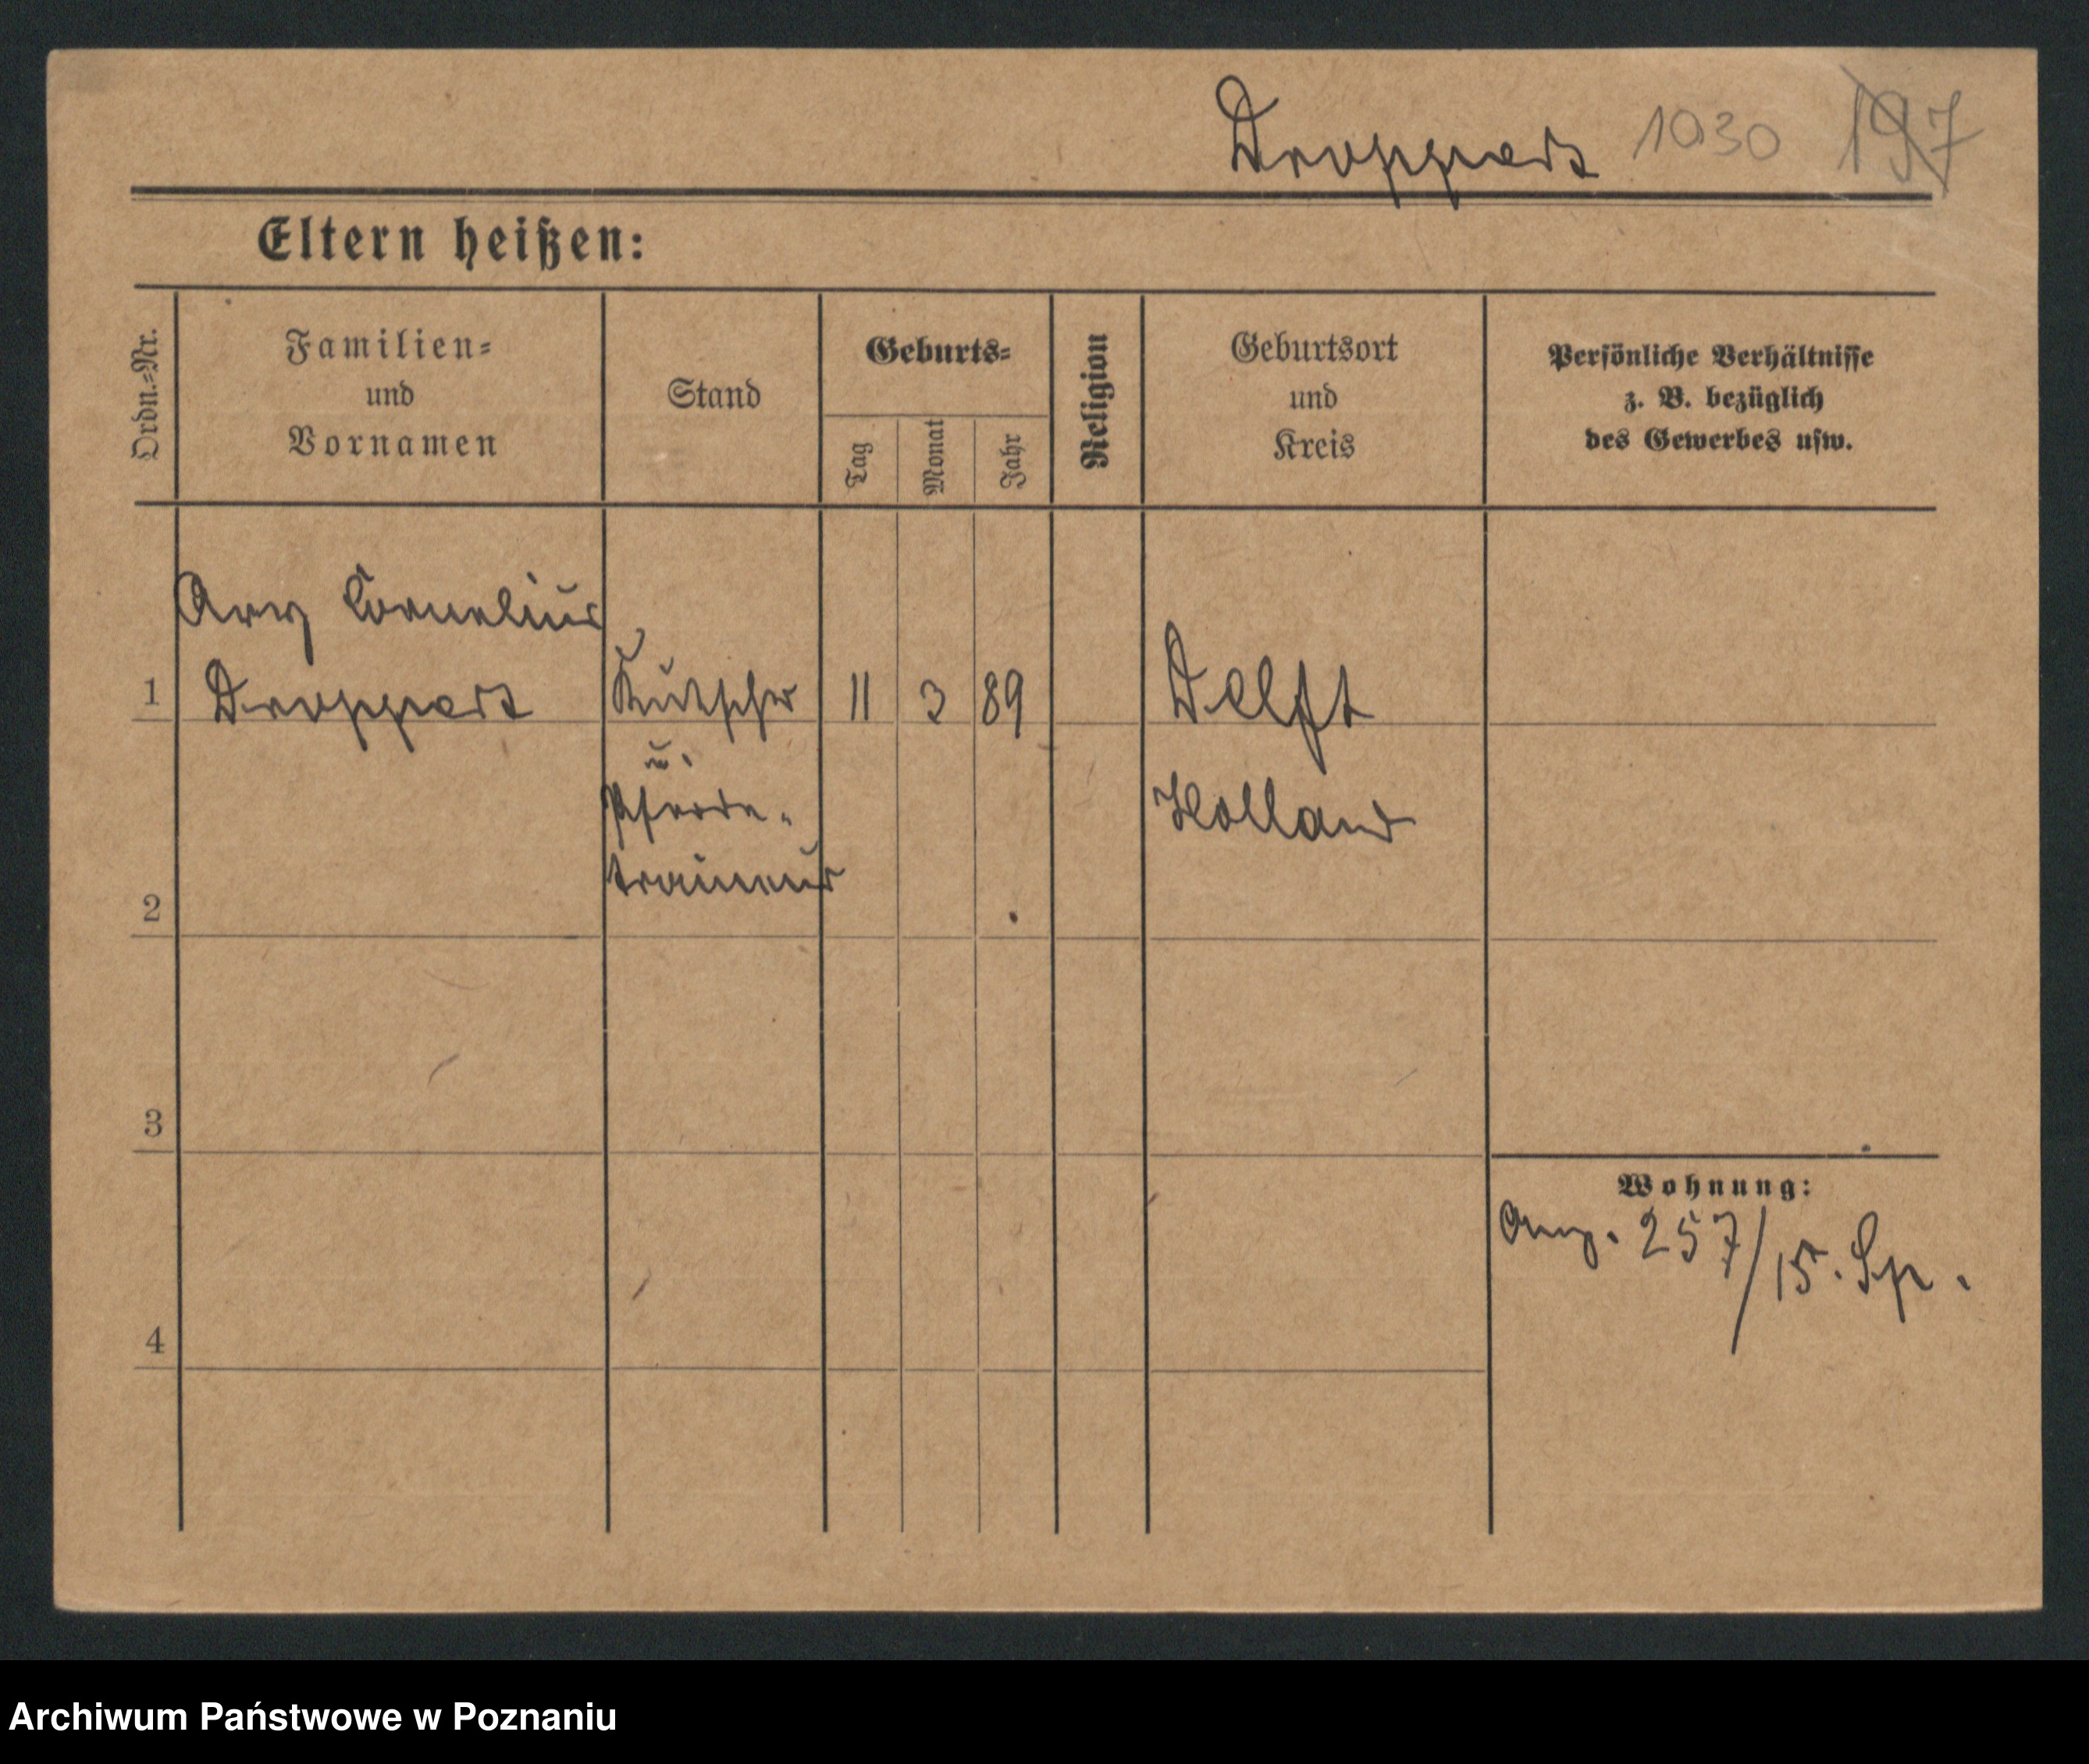 Droppert 1030 197
Eltern heißen:
Ordn.-Nr.
Familien-
und
Vornamen
Stand
Geburts-
Tag
Monat
Jahr
Religion
Geburtsort
und
Kreis
Persönliche Verhältnisse
z. B. bezüglich
des Gewerbes usw.
Ary Cornelius
1 Droppert Kutscher 11 3 89 Delft
u.
Pferde- Holland
traineur
2
3
Wohnung:
257/15. Sp.
4
Archiwum Państwowe w Poznaniu